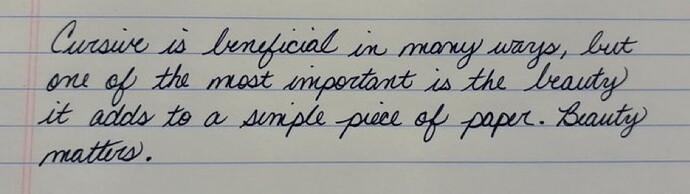 Cursive is beneficial in many ways, but
one of the most important is the beauty
it adds to a simple piece of paper. Beauty
matters.